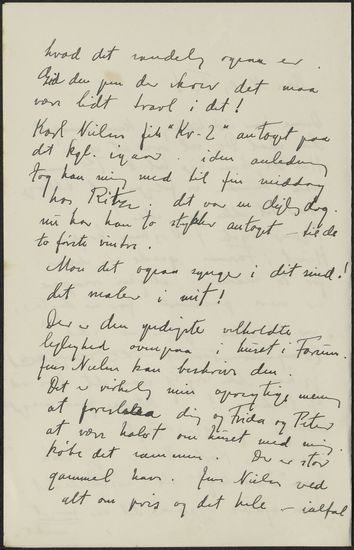 hvad det vandelig ogsaa er.
Gid den pen der skrev det maa
være lidt travl i det!
Karl Nielsen fik "Kv-2" antaget paa
dt kgl. igaar. iden anledning
tog han mig med til fin middag
hos Ritz. dt var en dejlig dag.
nu har han to stykker antaget - til de
to første vintre.
Mon det ogsaa synger i dit sind!
det maler i mit!
Der er den yndigste velholdte
lejlighed ovenpaa i huset i Farum.
fru Nielsen kan beskrive den.
Det er virkelig min oprigtige mening
at foreslaa dig og Frida og Peter
at være halvt om huset med mig.
købe det sammen. Der er stor
gammel have. fru Nielsen ved
alt om pris og det hele - ialfal